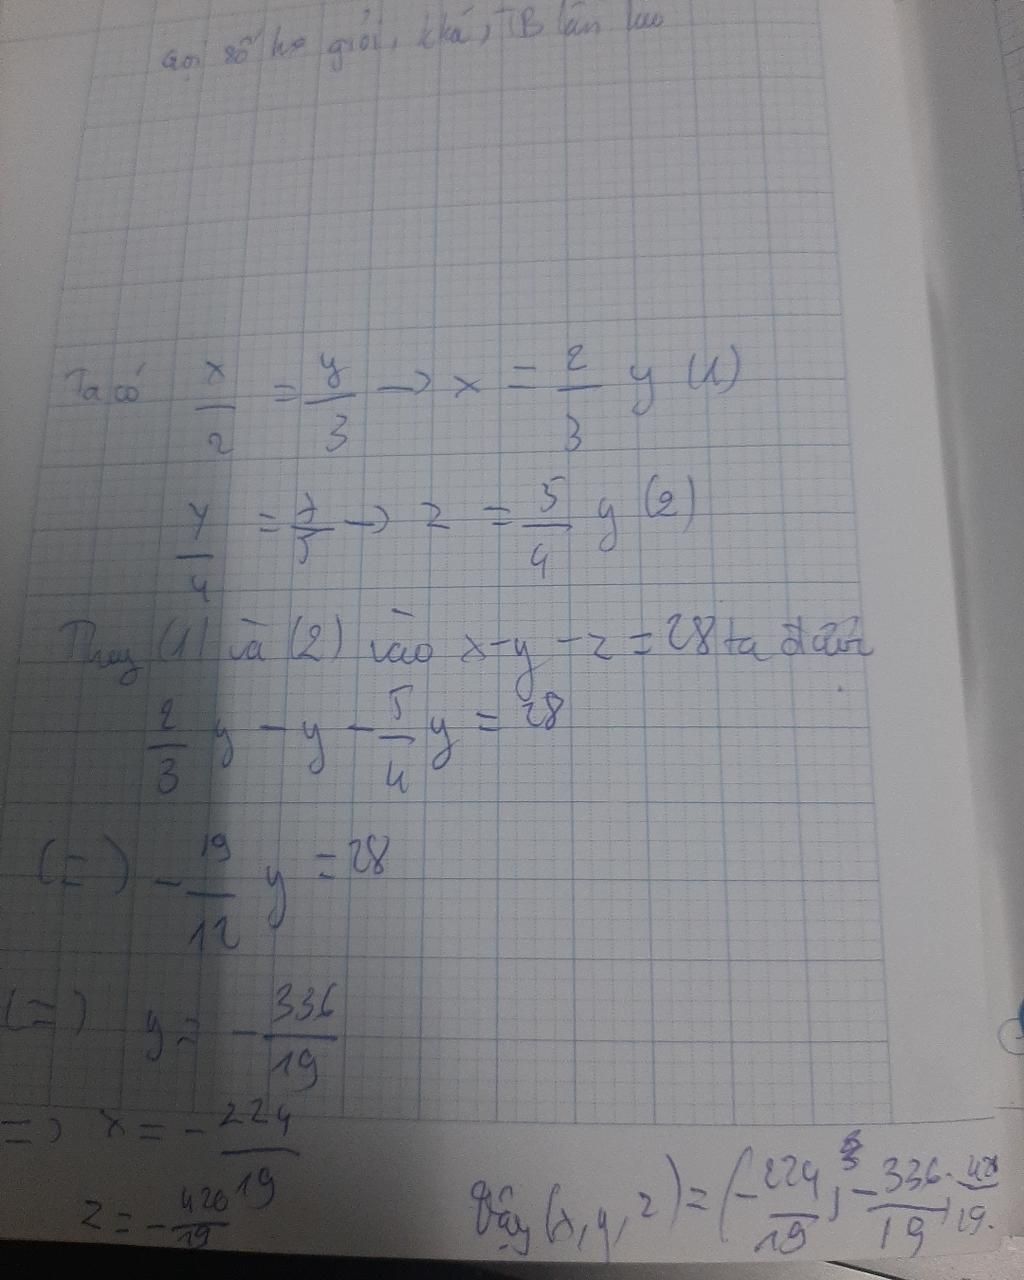 Gọi số hs giỏi, khá, TB lần lượt
Ta có x/2 = y/3 → x = 2/3 y (1)
y/4 = z/5 → z = 5/4 y (2)
Thay (1) và (2) vào x - y - z = 28 ta được
2/3 y - y - 5/4 y = 28
(=) - 19/12 y = 28
(=) y = - 336/19
=> x = - 224/19
z = - 420/19
Vậy (x, y, z) = (- 224/19 ; - 336/19